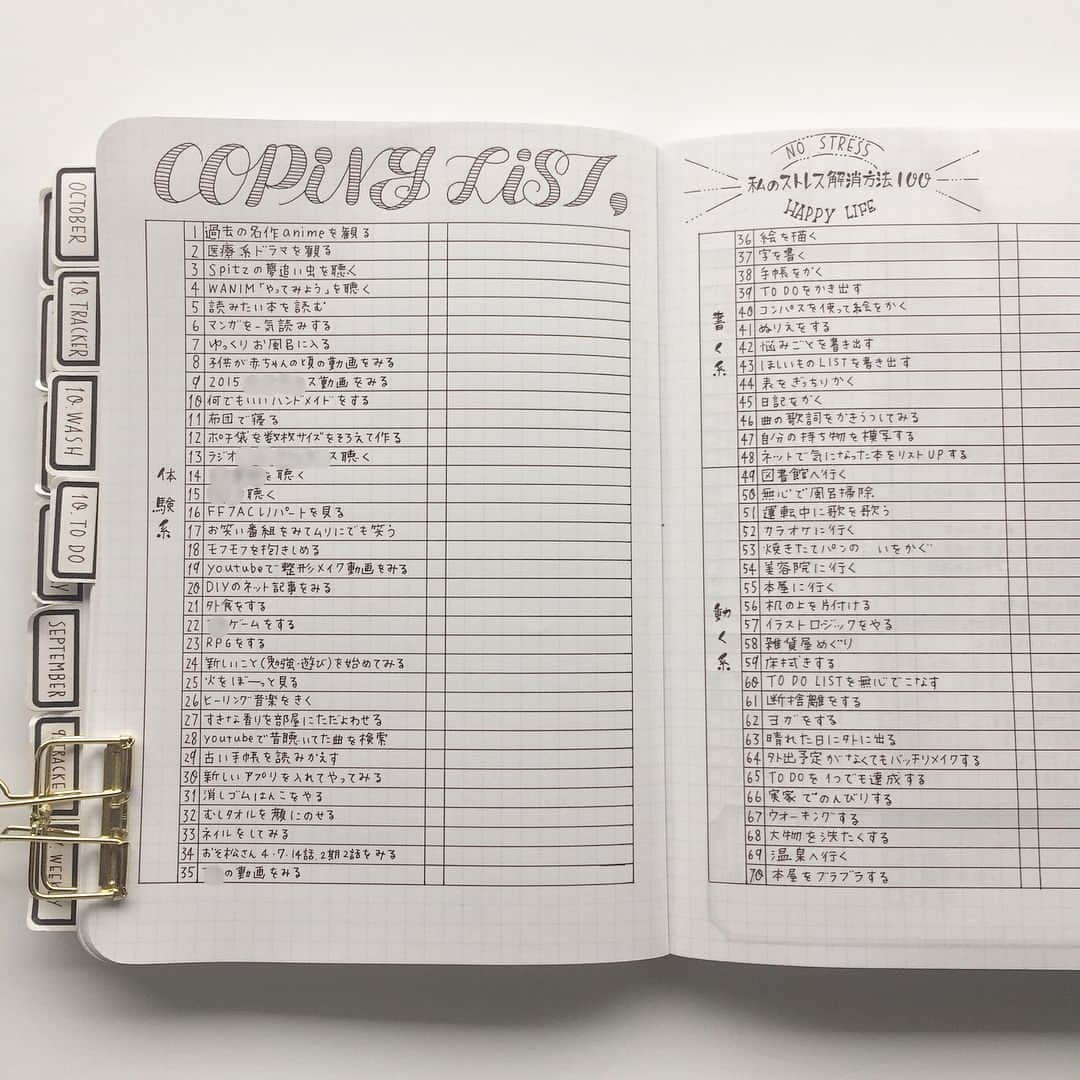 COPING LIST,
1 過去の名作animeを観る
2 医療系ドラマを観る
3 Spitzの夢追い虫を聴く
4 WANIM「やってみよう」を聴く
5 読みたい本を読む
6 マンガを一気読みする
7 ゆっくりお風呂に入る
8 子供が赤ちゃんの頃の動画をみる
9 2015 ス動画をみる
10 何でもいいハンドメイドをする
11 布団で寝る
12 ポチ袋を数枚サイズをそろえて作る
13 ラジオ ス聴く
14 を聴く
15 聴く
体験系
16 FF7ACレノパートを見る
17 お笑い番組をみてムリにでも笑う
18 モフモフを抱きしめる
19 youtubeで整形メイク動画をみる
20 DIYのネット記事をみる
21 外食をする
22 ゲームをする
23 RPGをする
24 新しいこと(勉強・遊び)を始めてみる
25 火をぼーっと見る
26 ヒーリング音楽をきく
27 すきな香りを部屋にただよわせる
28 youtubeで昔聴いてた曲を検索
29 古い手帳を読みかえす
30 新しいアプリを入れてやってみる
31 消しゴムはんこをやる
32 むしタオルを顔にのせる
33 ネイルをしてみる
34 おそ松さん4・7・14話.2期2話をみる
35 の動画をみる
NO STRESS
私のストレス解消方法100
HAPPY LIFE
36 絵を描く
37 字を書く
38 手帳をかく
39 TO DOをかき出す
40 コンパスを使って絵をかく
41 ぬりえをする
書く系
42 悩みごとを書き出す
43 ほしいものLISTを書き出す
44 表をぎっちりかく
45 日記をかく
46 曲の歌詞をかきうつしてみる
47 自分の持ち物を模写する
48 ネットで気になった本をリストUPする
49 図書館へ行く
50 無心で風呂掃除
51 運転中に歌を歌う
52 カラオケに行く
53 焼きたてパンの いをかぐ
54 美容院に行く
55 本屋に行く
56 机の上を片付ける
57 イラストロジックをやる
動く系
58 雑貨屋めぐり
59 床拭きする
60 TO DO LISTを無心でこなす
61 断捨離をする
62 ヨガをする
63 晴れた日に外に出る
64 外出予定がなくてもバッチリメイクする
65 TO DOを1つでも達成する
66 実家でのんびりする
67 ウォーキングする
68 大物を洗たくする
69 温泉へ行く
70 本屋をブラブラする
OCTOBER
10.TRACKER
10.WASH
10.TO DO
SEPTEMBER
9.TRACKER
WEEK